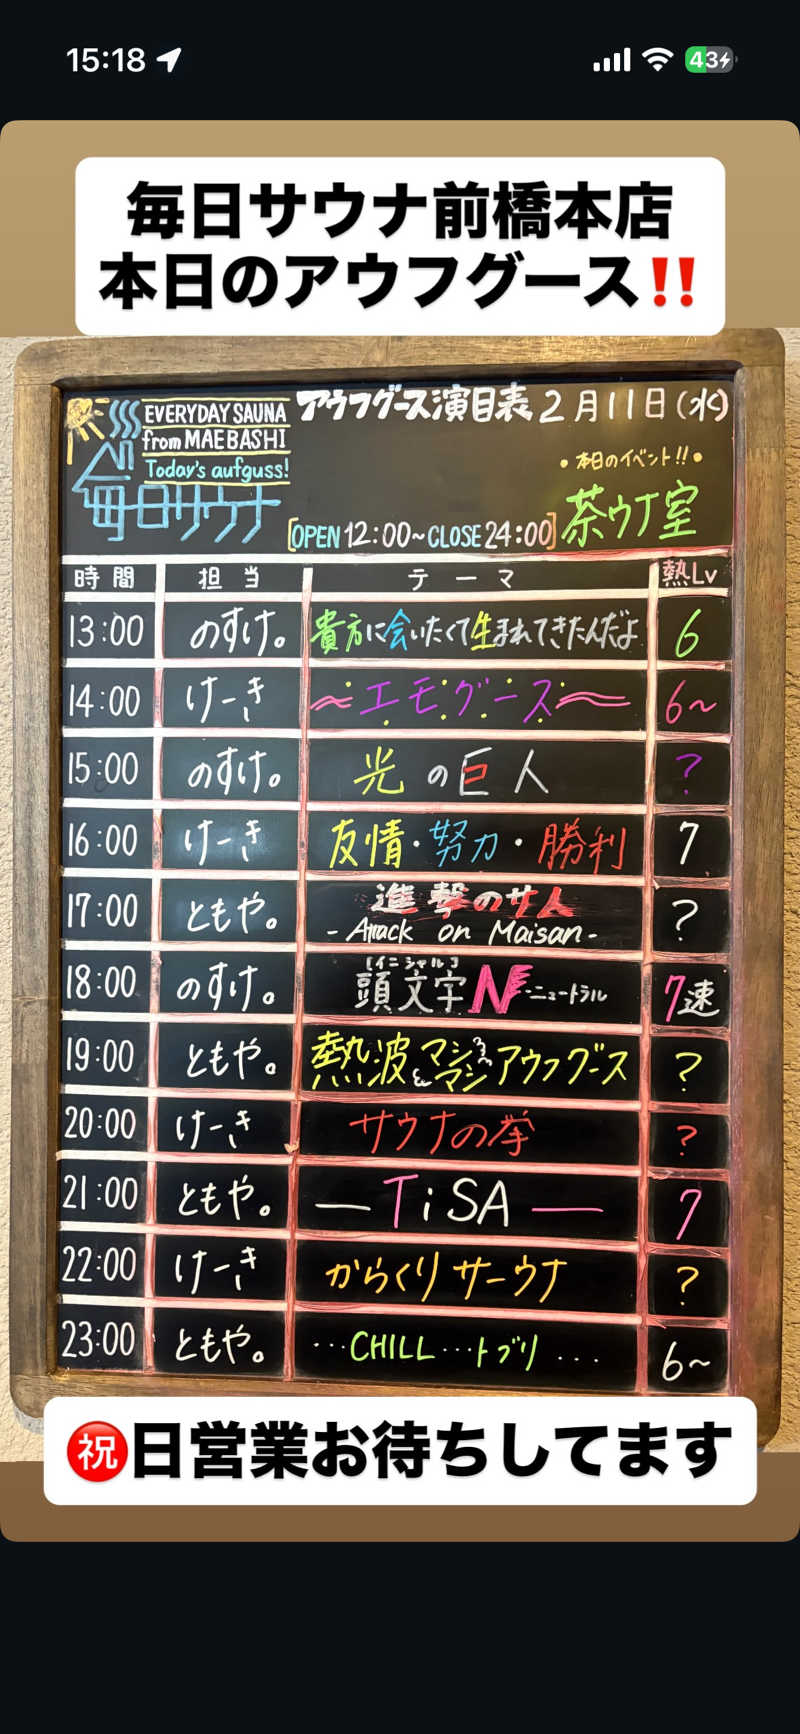 15:18
43
毎日サウナ前橋本店
本日のアウフグース‼️
EVERYDAY SAUNA
from MAEBASHI
Today's aufguss!
毎日サウナ
アウフグース演目表 2月11日(水)
・本日のイベント!!・
茶ウナ室
[OPEN 12:00~CLOSE 24:00]
時間 担当 テーマ 熱Lv
13:00 のすけ。 貴方に会いたくて生まれてきたんだよ 6
14:00 けーき 〜エモグース〜 6~
15:00 のすけ。 光の巨人 ?
16:00 けーき 友情・努力・勝利 7
17:00 ともや。 進撃のサ人 ?
- Attack on Maisan -
18:00 のすけ。 頭文字[イニシャル]N -ニュートラル 7速
19:00 ともや。 熱波とマシマシアウフグース ?
20:00 けーき サウナの拳 ?
21:00 ともや。 — TiSA — 7
22:00 けーき からくりサーウナ ?
23:00 ともや。 …CHILL…トブリ… 6~
㊗️日営業お待ちしてます